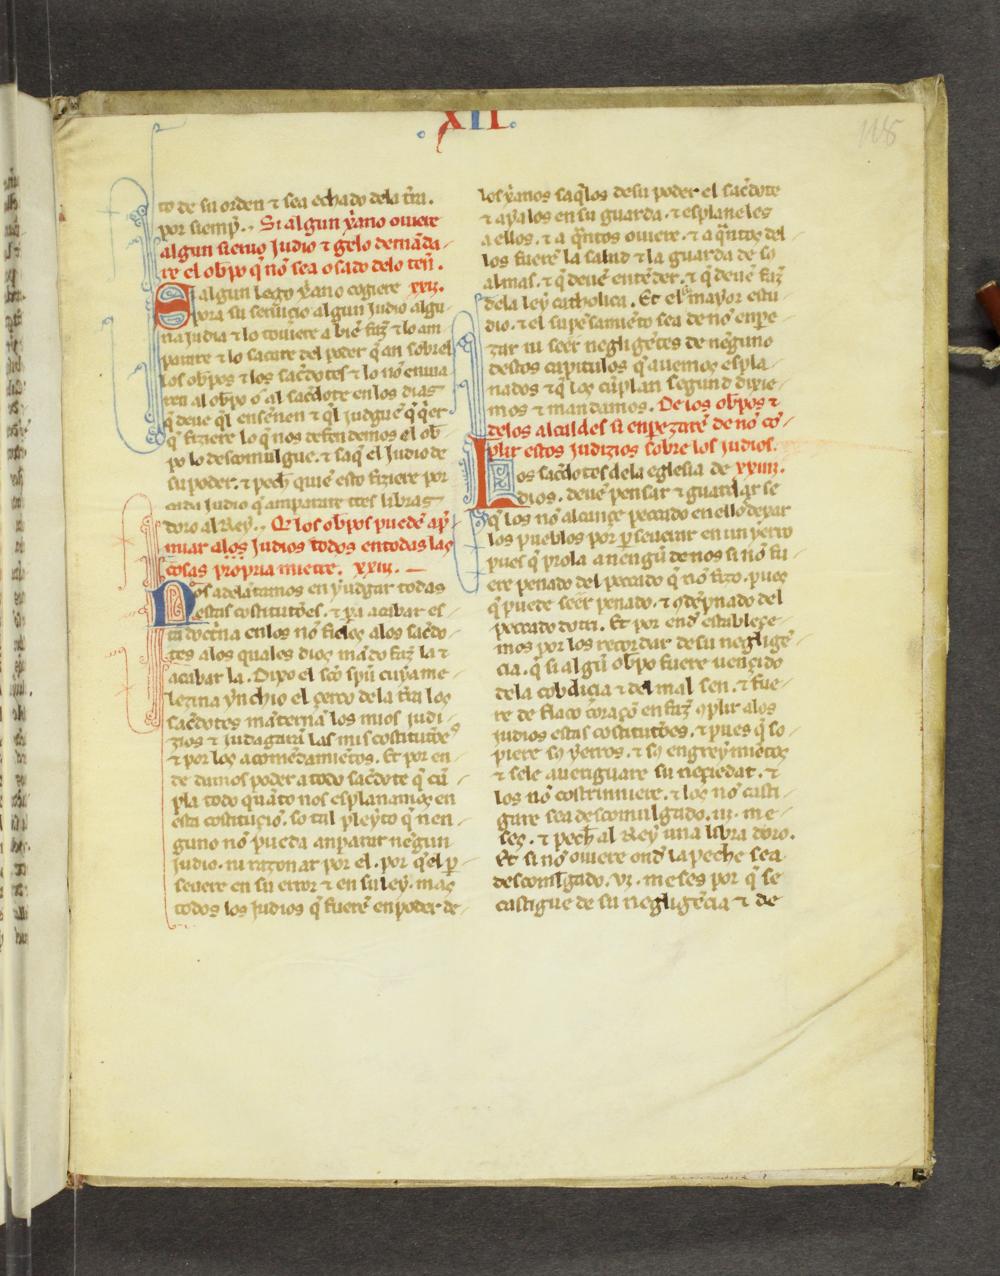 .XII.
118
to de su orden ⁊ sea echado dela t̃ra.
por siemp̃. Si algun xp̃ano ouiere
algun sieruo Judio ⁊ gelo demãda
re el ob̃po q̃ nõ sea osado delo ten̄.
Si algun lego xp̃ano cogiere xxii.
pora su seruiçio algun Judio algu
na judia ⁊ lo touiere a biẽ faz̃ ⁊ lo am
parare ⁊ lo sacare del poder q̃ an sobrel
los ob̃pos ⁊ los sac̃dotes ⁊ lo nõ enuia
ren al ob̃po o al sac̃dote en los dias
q̃ deue q̃l enseñen ⁊ q̃l judguẽ q̃ q̃er
q̃ fiziere lo q̃ nos defendemos el ob̃
po lo descomulgue. ⁊ saq̃ el Judio de
su poder. ⁊ pech̃ quiẽ esto fiziere por
cada judio q̃ amparare tres libras
doro al Rey. Q̃ los ob̃pos puedẽ ap̃
miar alos Judios todos en todas las
cosas propria miẽtre. xxiii.
Nos adelãtamos en yudgar todas
estas costitutões. ⁊ pa acabar es
ta doctrina en los nõ fieles alos sac̃do
tes alos quales dios mãdo faz̃ la ⁊
acabar la. Dixo el sc̃o sp̃u cuya me
lezina ynchio el çerco dela t̃ra los
sac̃dotes mãternã los mios judi
zios ⁊ judagarã las mis costitutões
⁊ por los acomẽdamiẽtos. Et por en
de damos poder a todo sac̃dote q̃ cũ
pla todo quãto nos esplanamos en
esta costituçiõ. so tal pleyto q̃ nen
guno nõ pueda anparar nẽgun
judio. ni razonar por el. por q̃ el p̱
seuere en su error ⁊ en su ley. mas
todos los judios q̃ fuerẽ en poder de
los xp̃anos saq̃los de su poder el sac̃dote
⁊ ayalos en su guarda. ⁊ esplaneles
a ellos. ⁊ a q̃ntos ouiere. ⁊ a q̃ntos del
los fuere la salud ⁊ la guarda de so
almas. ⁊ q̃ deuẽ entẽder. ⁊ q̃ deuẽ faz̃
dela ley catholica. Et el mayor estu
dio. ⁊ el sup̱esamiẽto sea de nõ enpe
zar ni seer negligẽtes de nẽguno
destos capitulos q̃ auemos espla
nados ⁊ q̃ los cũplan segund dixie
mos ⁊ mandamos. De los ob̃pos ⁊
delos alcaldes si enpezarẽ de nõ cõ
plir estos judizios sobre los judios.
Los sac̃dotes dela eglesia de xxiiii.
dios. deuẽ pensar ⁊ guardar se
q̃ los nõ alcançe peccado en ello dexar
los pueblos por p̱seuerar en un yerro
pues q̃ prol a nengũ de nos si nõ fu
ere penado del peccado q̃ nõ fizo. pues
q̃ puede seer penado. ⁊ ꝯdẽpnado del
peccado dotri. Et por end̃ estableçe
mos por los recordar de su negligẽ
çia. q̃ si algũ ob̃po fuere uençido
dela cobdiçia ⁊ del mal sen. ⁊ fue
re de flaco coraçõ en faz̃ ꝯplir alos
judios estas costitutões. ⁊ pues q̃ so
piere so yerros. ⁊ so engreymiẽtos
⁊ sele aueriguare su neçiedat. ⁊
los nõ costrinniere. ⁊ los nõ casti
gare sea descomulgado. iii. me
ses. ⁊ pech̃ al Rey una libra doro.
Et si nõ ouiere ond̃ la peche sea
descomlgado. vi. meses por q̃ se
castigue de su negligẽcia ⁊ de